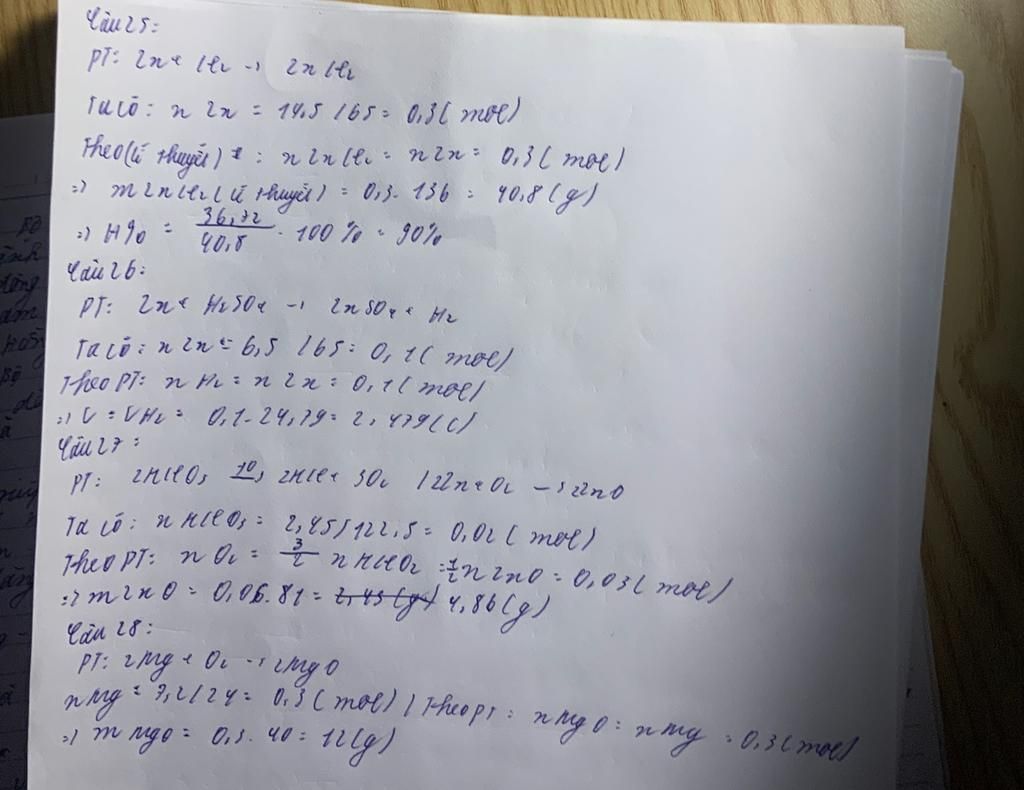 Câu 25:
PT: Zn + Cl₂ → ZnCl₂
Ta có: nZn = 19,5/65 = 0,3 (mol)
Theo (lí thuyết): nZnCl₂ = nZn = 0,3 (mol)
=> mZnCl₂ (lí thuyết) = 0,3 . 136 = 40,8 (g)
=> H% = 36,72/40,8 . 100% = 90%
Câu 26:
PT: Zn + H₂SO₄ → ZnSO₄ + H₂
Ta có: nZn = 6,5/65 = 0,1 (mol)
Theo PT: nH₂ = nZn = 0,1 (mol)
=> V = VH₂ = 0,1 . 24,79 = 2,479 (l)
Câu 27:
PT: 2KClO₃ t⁰→ 2KCl + 3O₂ / 2Zn + O₂ → 2ZnO
Ta có: nKClO₃ = 2,45/122,5 = 0,02 (mol)
Theo PT: nO₂ = 3/2 nKClO₂ = 1/2 nZnO = 0,03 (mol)
=> mZnO = 0,06 . 81 = 2,43 (g) 4,86 (g)
Câu 28:
PT: 2Mg + O₂ → 2MgO
nMg = 7,2/24 = 0,3 (mol) / Theo PT: nMgO = nMg = 0,3 (mol)
=> mMgO = 0,3 . 40 = 12 (g)